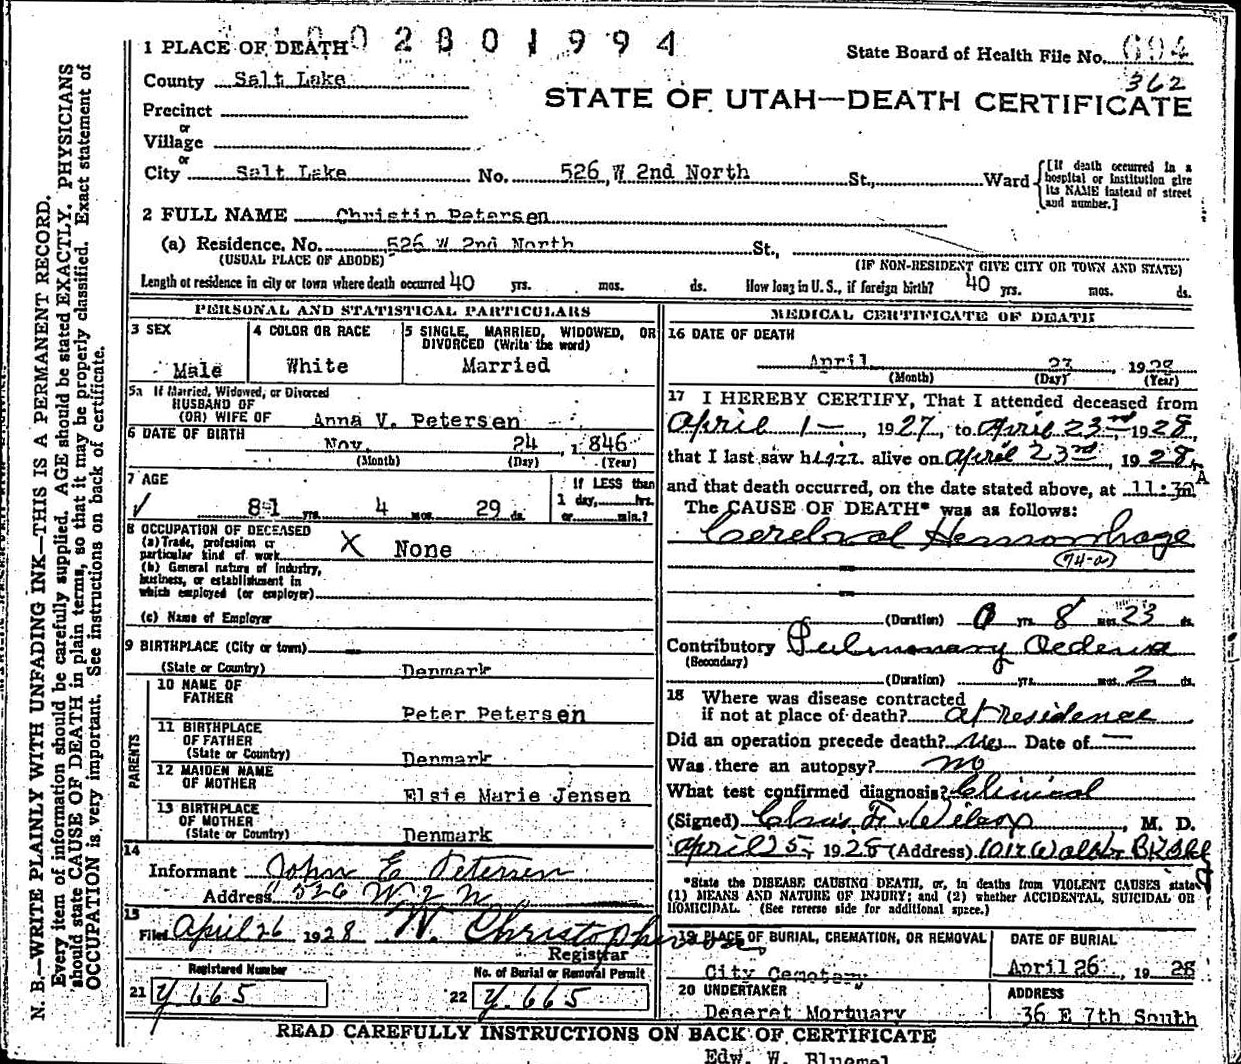 1 PLACE OF DEATH 0 2 8 0 1 9 9 4
State Board of Health File No. 694
362
County Salt Lake
STATE OF UTAH—DEATH CERTIFICATE
Precinct
or
Village
or
City Salt Lake No. 526 W 2nd North St., Ward
{[If death occurred in a hospital or institution give its NAME instead of street and number.]
2 FULL NAME Christin Petersen
(a) Residence, No. 526 W 2nd North St.,
(USUAL PLACE OF ABODE) (IF NON-RESIDENT GIVE CITY OR TOWN AND STATE)
Length of residence in city or town where death occurred 40 yrs. mos. ds. How long in U. S., if foreign birth? 40 yrs. mos. ds.
PERSONAL AND STATISTICAL PARTICULARS
3 SEX
Male
4 COLOR OR RACE
White
5 SINGLE, MARRIED, WIDOWED, OR
DIVORCED (Write the word)
Married
5a If Married, Widowed, or Divorced
HUSBAND OF
(OR) WIFE OF Anna V. Petersen
6 DATE OF BIRTH
Nov. 24, 1846
(Month) (Day) (Year)
7 AGE
81 yrs. 4 mos. 29 ds.
If LESS than
1 day, hrs.
or min.?
8 OCCUPATION OF DECEASED
(a) Trade, profession or
particular kind of work X None
(b) General nature of industry,
business, or establishment in
which employed (or employer)
(c) Name of Employer
9 BIRTHPLACE (City or town)
(State or Country) Denmark
PARENTS
10 NAME OF
FATHER
Peter Petersen
11 BIRTHPLACE
OF FATHER
(State or Country) Denmark
12 MAIDEN NAME
OF MOTHER
Elsie Marie Jensen
13 BIRTHPLACE
OF MOTHER
(State or Country) Denmark
14
Informant John E Petersen
Address 526 W 2 N
15
Filed April 26 1928 W. Christopherson
Registrar
Registered Number
21 Y 665
No. of Burial or Removal Permit
22 Y. 665
MEDICAL CERTIFICATE OF DEATH
16 DATE OF DEATH
April 23, 1928
(Month) (Day) (Year)
17 I HEREBY CERTIFY, That I attended deceased from
April 1—, 1927, to April 23rd, 1928,
that I last saw him alive on April 23rd, 1928,
and that death occurred, on the date stated above, at 11:30 A m
The CAUSE OF DEATH* was as follows:
Cerebral Hemorrhage
(74-a)
(Duration) 0 yrs. 8 mos. 23 ds.
Contributory Pulmonary Oedema
(Secondary)
(Duration) yrs. mos. 2 ds.
18 Where was disease contracted
if not at place of death? at residence
Did an operation precede death? Date of —
Was there an autopsy? no
What test confirmed diagnosis? Clinical
(Signed) Chas. F. Wilcox, M. D.
April 25, 1928 (Address)
*State the DISEASE CAUSING DEATH, or, in deaths from VIOLENT CAUSES state
(1) MEANS AND NATURE OF INJURY; and (2) whether ACCIDENTAL, SUICIDAL OR
HOMICIDAL. (See reverse side for additional space.)
19 PLACE OF BURIAL, CREMATION, OR REMOVAL
City Cemetary
DATE OF BURIAL
April 26, 1928
20 UNDERTAKER
Deseret Mortuary
ADDRESS
36 E 7th South
READ CAREFULLY INSTRUCTIONS ON BACK OF CERTIFICATE
Edw. W. Bluemel
N. B.—WRITE PLAINLY WITH UNFADING INK—THIS IS A PERMANENT RECORD.
Every item of information should be carefully supplied. AGE should be stated EXACTLY. PHYSICIANS
should state CAUSE OF DEATH in plain terms, so that it may be properly classified. Exact statement of
OCCUPATION is very important. See instructions on back of certificate.